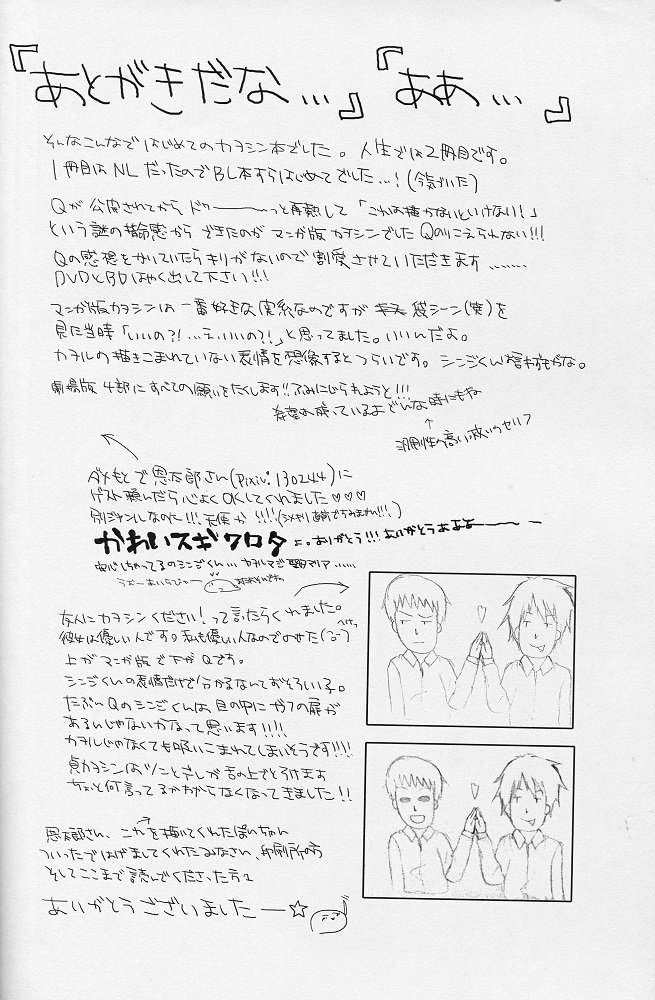 『あとがきだな…』『ああ…』
そんなこんなではじめてのカヲシン本でした。人生では2冊目です。
1冊目はNLだったのでBL本すらはじめてでした…!(今気づいた)
Qが公開されてからドゥーーーっと再熱して「これは描かないといけない!」
という謎の指令感からできたのがマンガ版カヲシンでした
Qの感想をかいていたらキリがないので割愛させていただきます……
DVDとBDはやく出して下さい!!!
マンガ版カヲシンは一番好きな
見た当時「いいの?!…え、いいの?!」と思ってました。いいんだよ。
カヲルの描きこまれていない表情を想像するとつらいです。シンジくん
劇場版4部にすべての願いをたくします!!ふみにじられようと!!!
希望は残っているよどんな時にもね
汎用性の高い救いのセリフ
ダメもとで恩太郎さん(pixiv:130244)に
ゲスト頼んだら心よくOKしてくれました♡♡♡
別ジャンルなのに!!!天使か!!!!(シメキリ直前ですみません!!!)
かわいスギワロタ よ。ありがとう!!!ありがとうあああーーー
シンジくん…カヲルマジ聖母マリア……
友人にカヲシンください!って言ったらくれました。
彼女は優しい人です。私も優しい人なのでのせた
上がマンガ版で下がQです。
シンジくんの表情だけで分かるなんておそろしい子。
たぶんQのシンジくんは目の中にガフの扉が
あるんじゃないかなって思います!!!!
カヲルじゃなくても吸いこまれてしまいそうです!!!!
貞カヲシンはツンとデレが舌の上でとろけますよ
ちょっと何言ってるかわからなくなってきました!!
恩太郎さん、これを描いてくれたぽいちゃん
ついったではげましてくれたみなさん、印刷所の方
そしてここまで読んでくださった方々
ありがとうございましたー☆